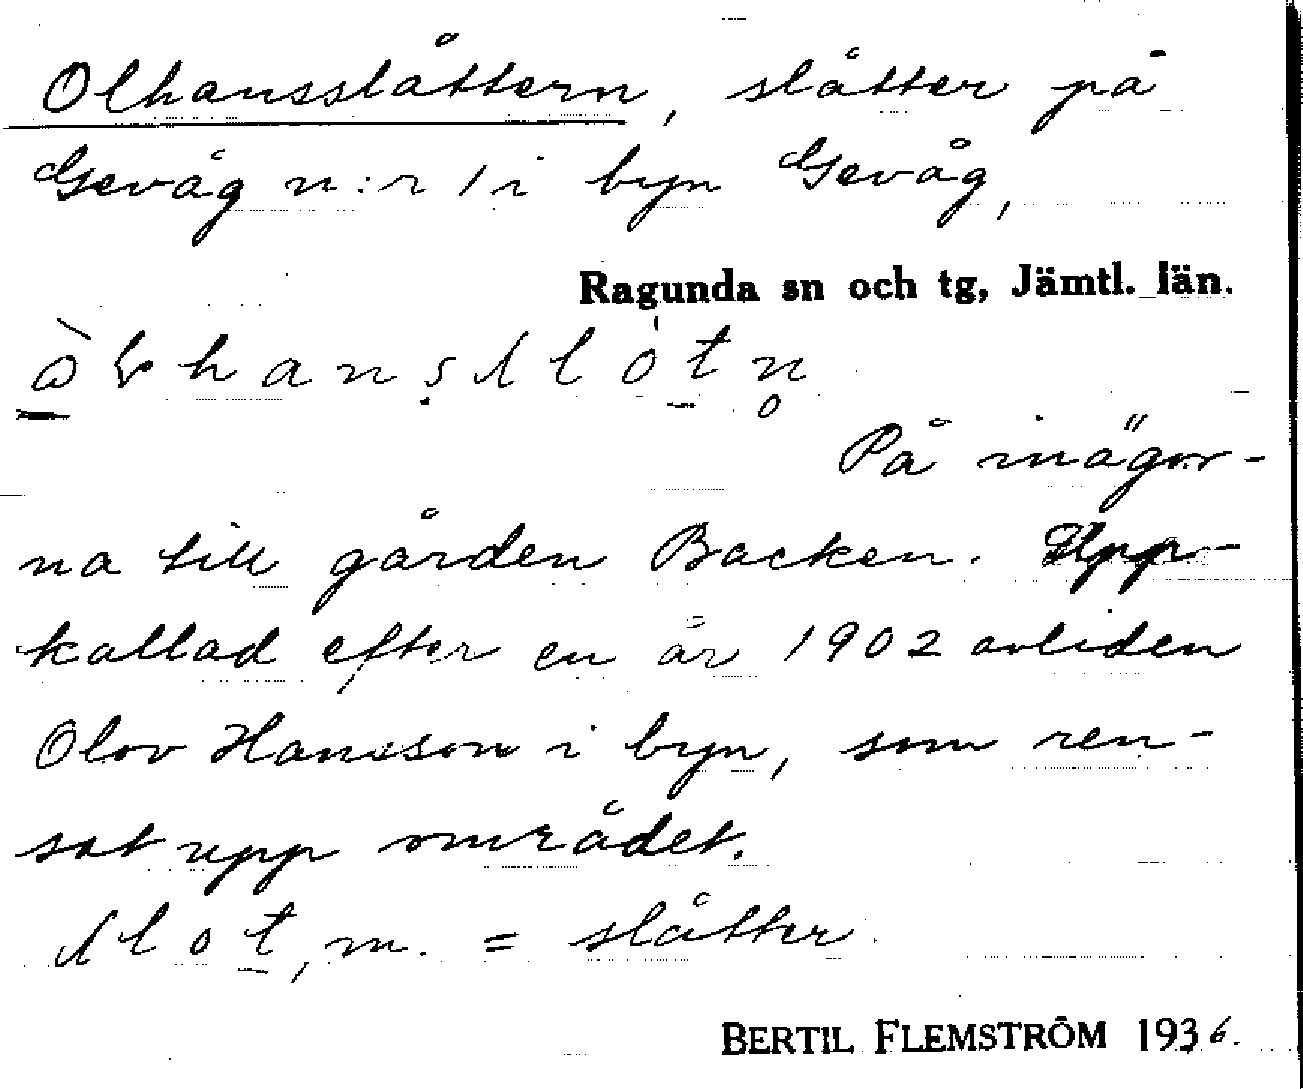 Olhansslåttern, slåtter på
Gevåg n:r 1 i byn Gevåg,
Ragunda sn och tg, Jämtl. län.
På inägor-
na till gården Backen. Upp-
kallad efter en år 1902 avliden
Olov Hansson i byn, som ren-
sat upp området.
m. = slåtter
BERTIL FLEMSTRÖM 1936.